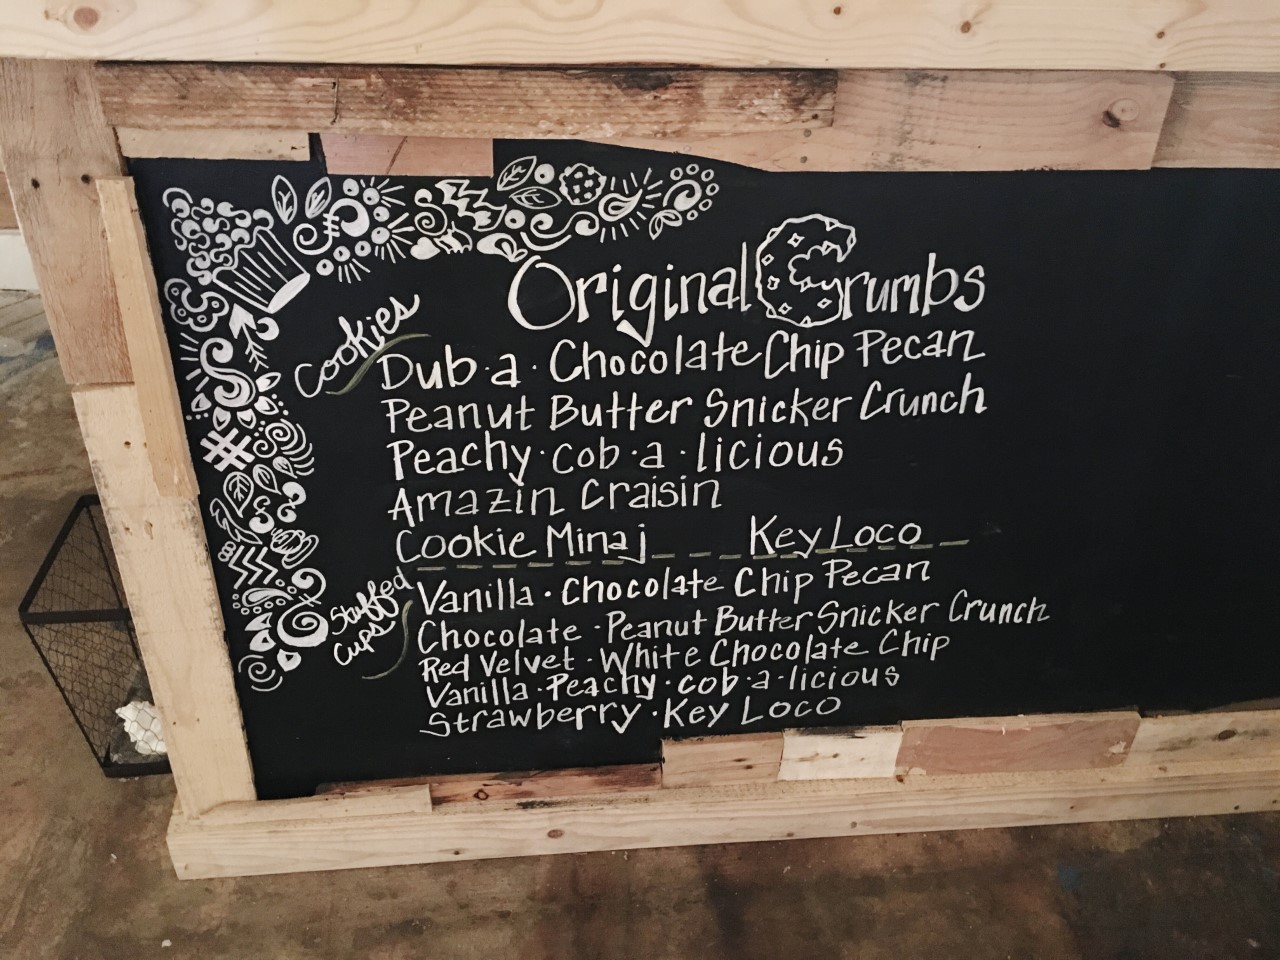 Original Crumbs
Cookies
Dub·a·Chocolate Chip Pecan
Peanut Butter Snicker Crunch
Peachy·cob·a·licious
Amazin Craisin
Cookie Minaj Key Loco
Stuffed
Cups
Vanilla·Chocolate Chip Pecan
Chocolate·Peanut Butter Snicker Crunch
Red Velvet·White Chocolate Chip
Vanilla·Peachy·cob·a·licious
Strawberry·Key Loco
#